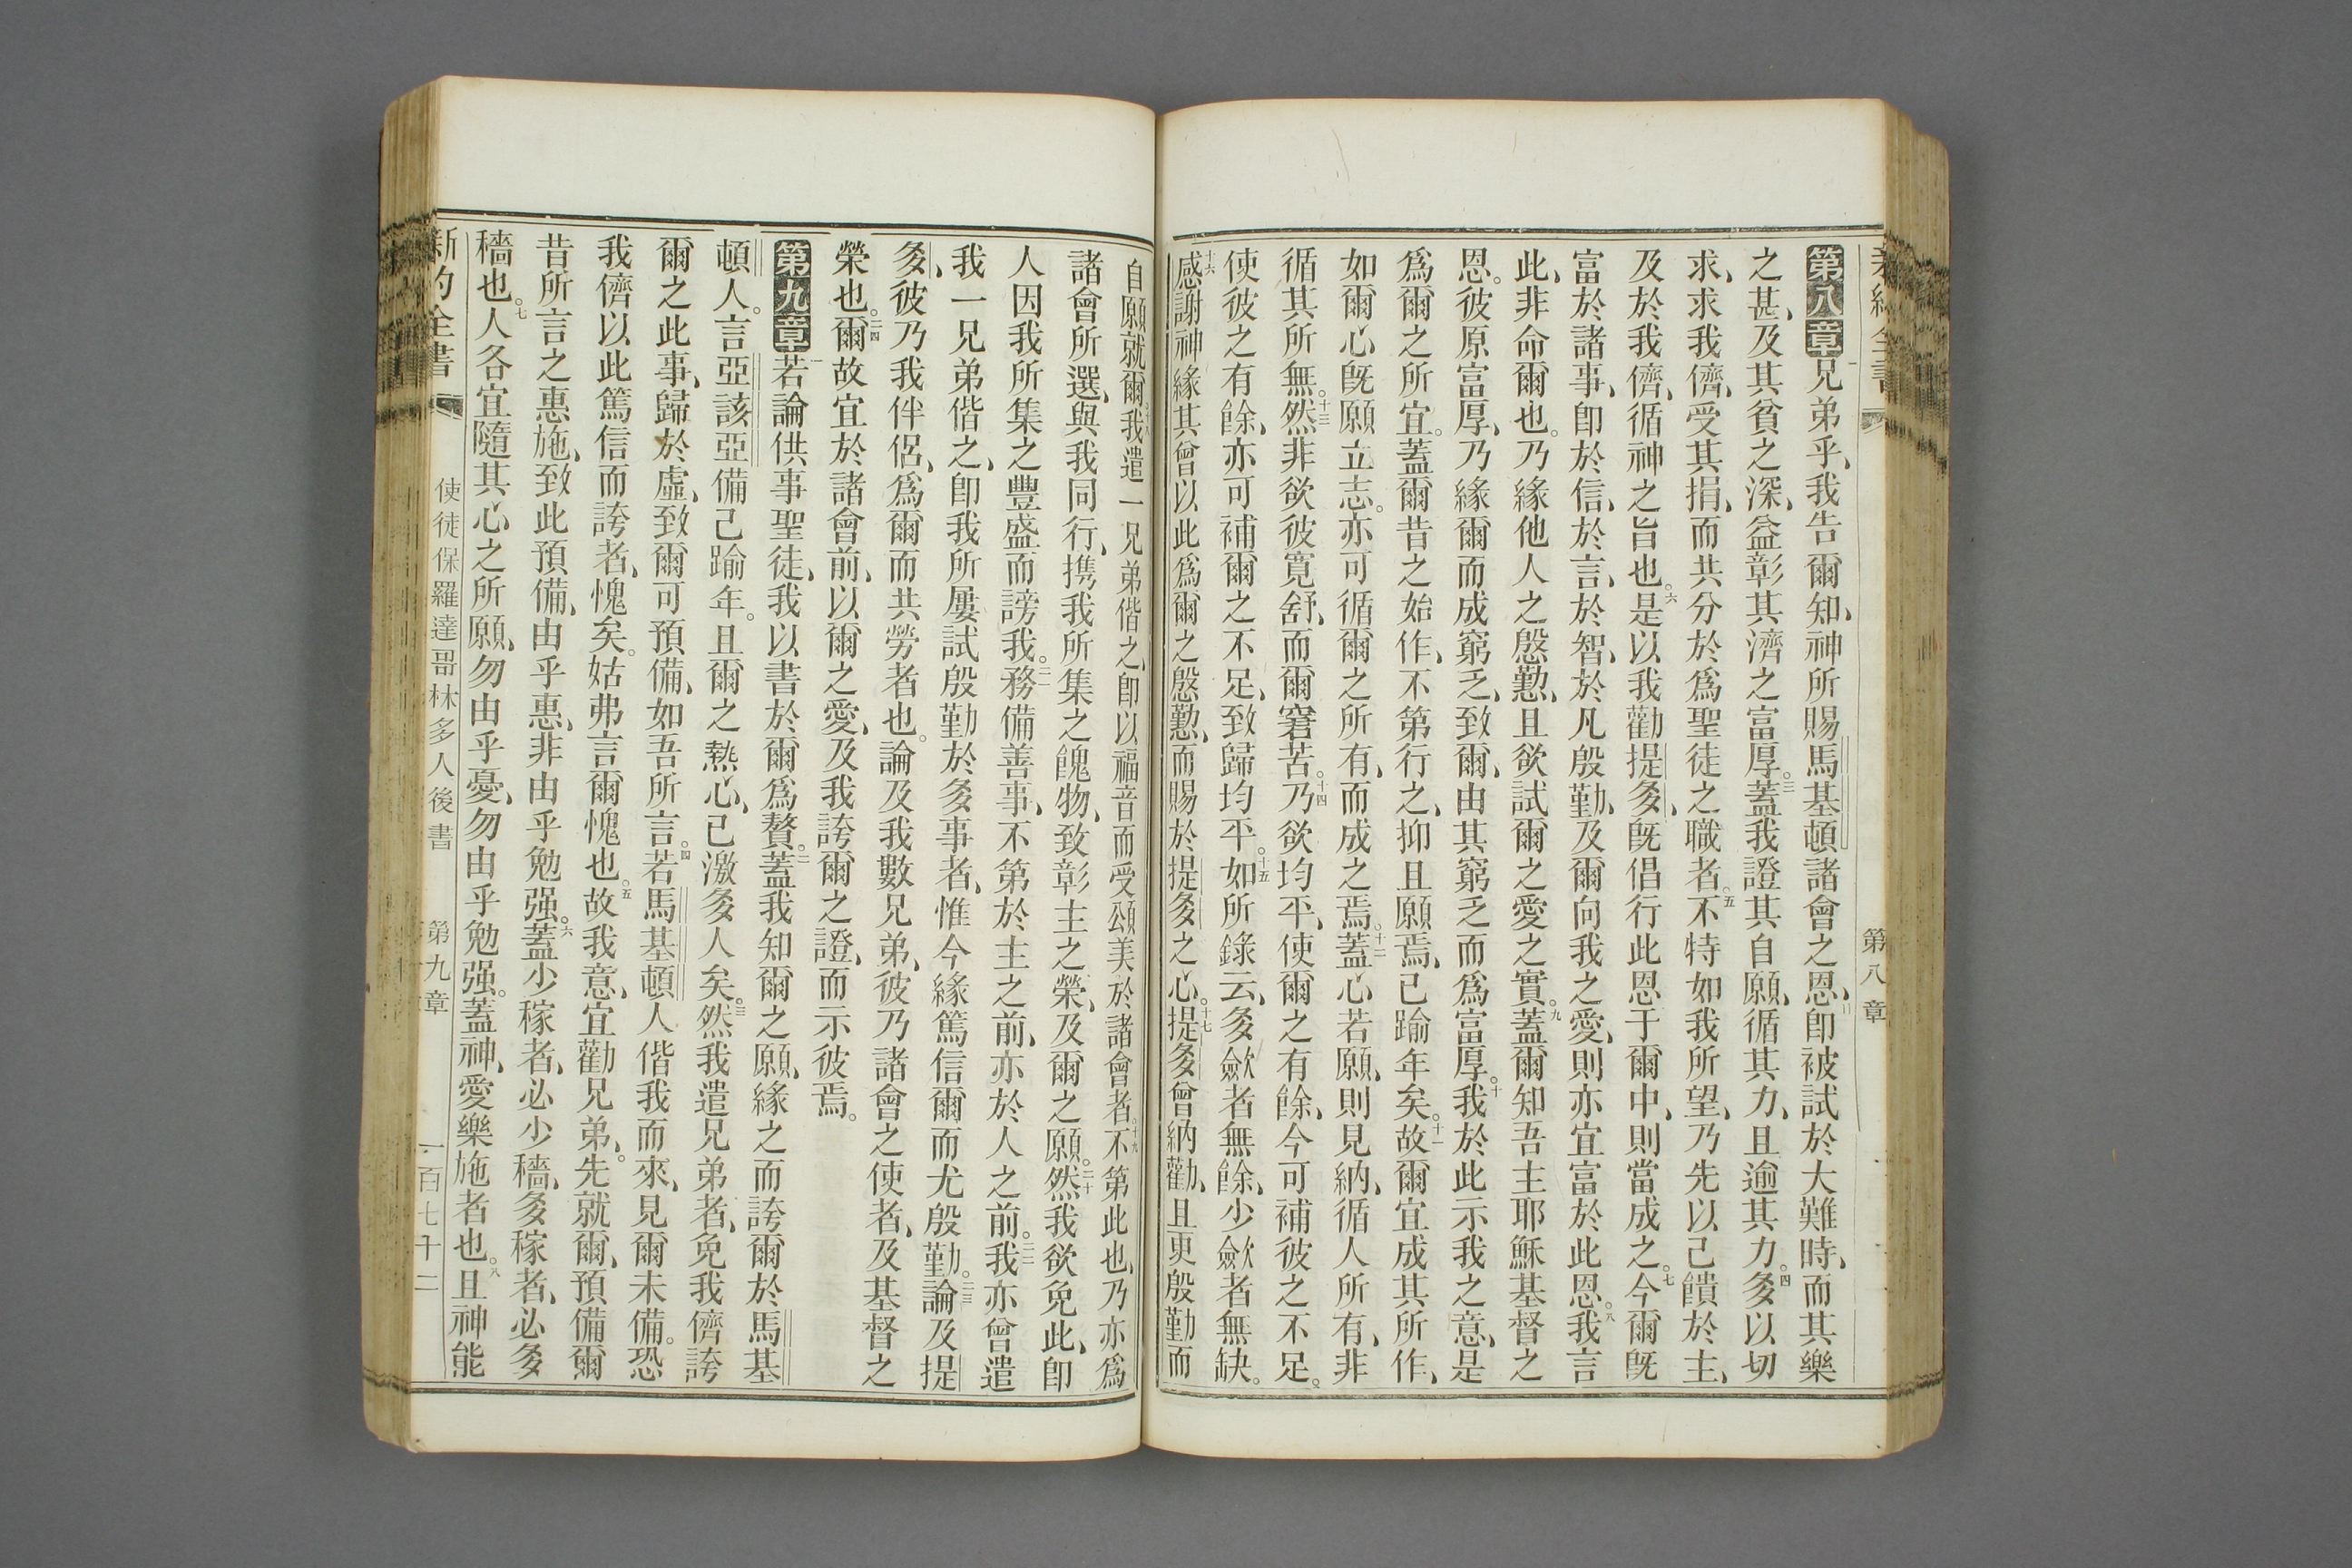 第八章
第八章一兄弟乎、我告爾知、神所賜馬基頓諸會之恩、二卽被試於大難時、而其樂
之甚、及其貧之深、益彰其濟之富厚。三蓋我證其自願、循其力、且逾其力。四多以切
求、求我儕、受其捐、而共分於爲聖徒之職者。五不特如我所望、乃先以己饋於主、
及於我儕、循神之旨也。六是以我勸提多、旣倡行此恩于爾中、則當成之。七今爾旣
富於諸事、卽於信、於言、於智、於凡殷勤、及爾向我之愛、則亦宜富於此恩。八我言
此、非命爾也。乃緣他人之慇懃、且欲試爾之愛之實。九蓋爾知吾主耶穌基督之
恩。彼原富厚、乃緣爾而成窮乏、致爾、由其窮乏而爲富厚。十我於此示我之意、是
爲爾之所宜。蓋爾昔之始作、不第行之、抑且願焉、已踰年矣。十一故爾宜成其所作、
如爾心旣願立志。亦可循爾之所有、而成之焉。十二蓋心若願、則見納、循人所有、非
循其所無。十三然非欲彼寬舒、而爾窘苦。十四乃欲均平、使爾之有餘、今可補彼之不足。
使彼之有餘、亦可補爾之不足、致歸均平。十五如所錄云、多斂者無餘、少斂者無缺。
十六感謝神緣其曾以此爲爾之慇懃、而賜於提多之心。十七提多曾納勸、且更殷勤而
自願就爾。十八我遣一兄弟偕之、卽以福音而受頌美於諸會者。十九不第此也、乃亦爲
諸會所選、與我同行、携我所集之餽物、致彰主之榮、及爾之願。二十然我欲免此、卽
人因我所集之豐盛而謗我。二一務備善事、不第於主之前、亦於人之前。二二我亦曾遣
我一兄弟偕之、卽我所屢試殷勤於多事者、惟今緣篤信爾而尤殷勤。二三論及提
多、彼乃我伴侶、爲爾而共勞者也。論及我數兄弟、彼乃諸會之使者、及基督之
榮也。二四爾故宜於諸會前、以爾之愛、及我誇爾之證、而示彼焉。
第九章一若論供事聖徒、我以書於爾爲贅。二蓋我知爾之願、緣之而誇爾於馬基
頓人。言亞該亞備已踰年。且爾之熱心、已激多人矣。三然我遣兄弟者、免我儕誇
爾之此事、歸於虛、致爾可預備、如吾所言。四若馬基頓人偕我而來、見爾未備。恐
我儕以此篤信而誇者、愧矣。姑弗言爾愧也。五故我意、宜勸兄弟、先就爾、預備爾
昔所言之惠施、致此預備、由乎惠、非由乎勉强。六蓋少稼者、必少穡、多稼者、必多
穡也。七人各宜隨其心之所願、勿由乎憂、勿由乎勉强。蓋神、愛樂施者也。八且神能
新約全書 使徒保羅達哥林多人後書 第九章 一百七十二